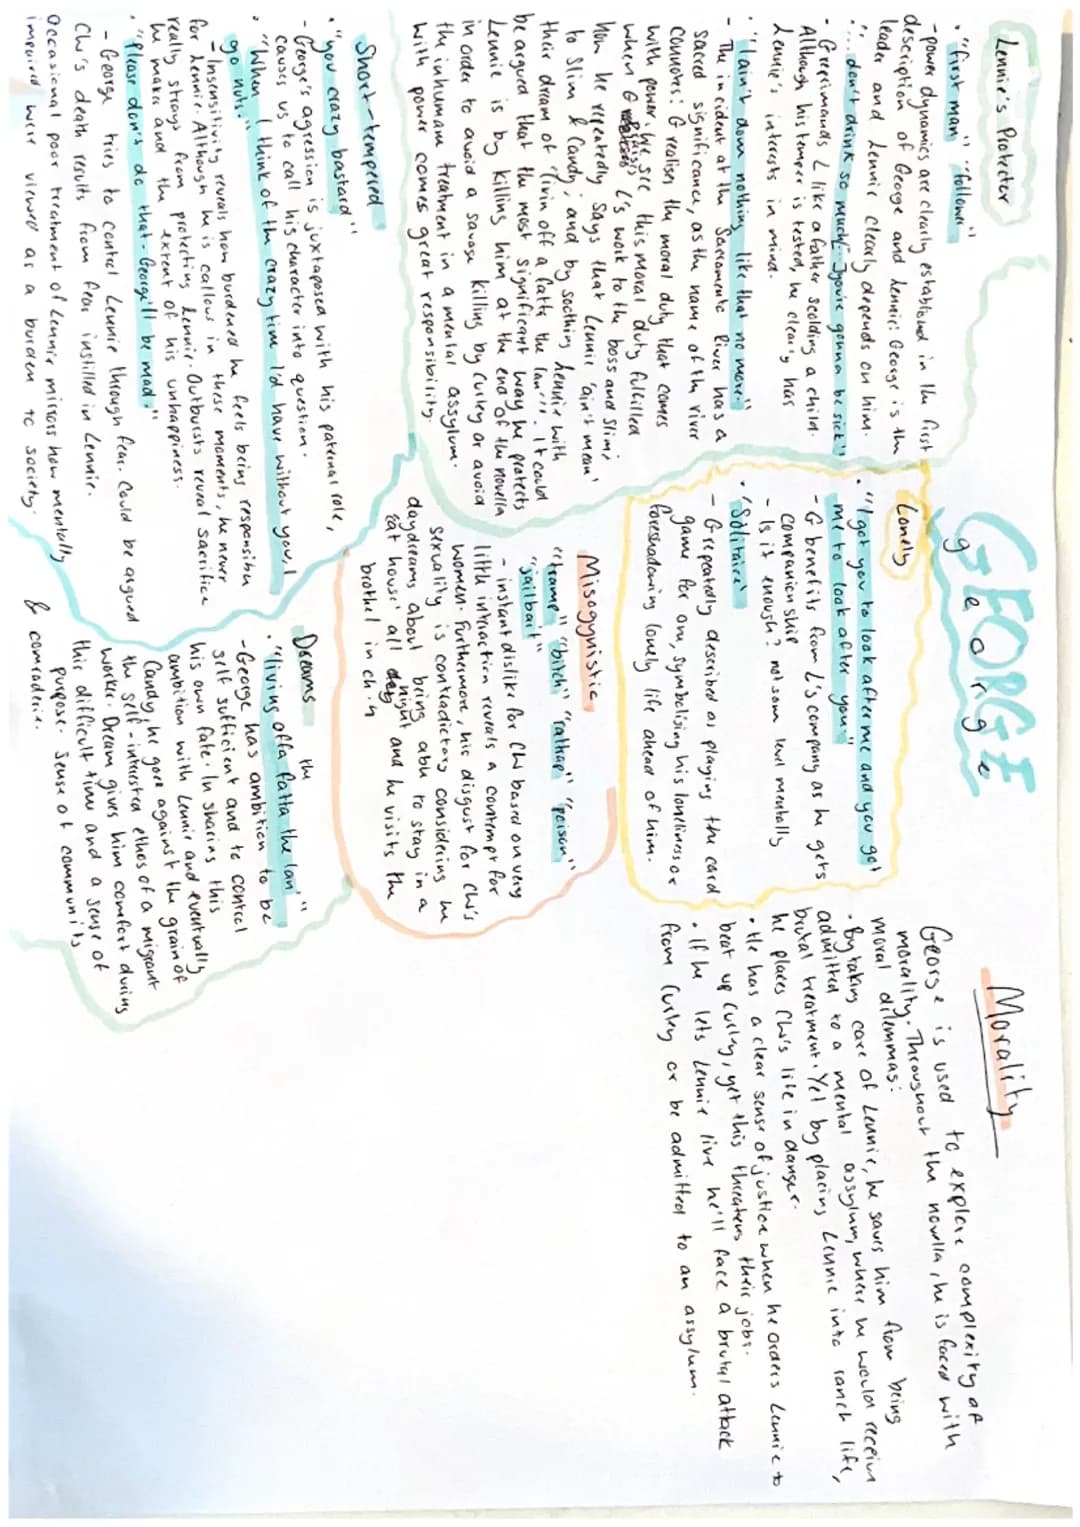 GEORGE
George
Lennie's Protecter
• "first man" "follower"
- power dynamics are clearly established in the first
description of George and Lennie: George is the
leader and Lennie clearly depends on him.
don't drink so much." "you're gonna be sick"
- G reprimands L like a father scolding a child.
Although his temper is tested, he clearly has
Lennie's interests in mind.
• "I ain't down nothing like that no more."
- The incident at the Sacramento River has a
sacred significance, as the name of the river
connotes: G realises the moral duty that comes
with power. We see this moral duty fulfilled
when G praises L's work to the boss and Slim;
how he repeatedly says that Lennie 'ain't mean'
to Slim & Candy; and by soothing Lennie with
their dream of 'livin off a fatta the lan'. It could
be argued that the most significant way he protects
Lennie is by killing him at the end of the novella
in order to avoid a savage killing by Curley or avoid
the inhumane treatment in a mental assylum.
With power comes great responsibility.
Short-tempered
• "you crazy bastard"
- George's agression is juxtaposed with his paternal role,
causes us to call his character into question.
• "When I think of the crazy time I'd have without you, I
go nuts."
- Insensitivity reveals how burdened he feels being responsible
for Lennie. Although he is callous in these moments, he never
really strays from protecting Lennie. Outbursts reveal sacrifice
he makes and the extent of his unhappiness.
• "Please don't do that. George'll be mad."
- George tries to control Lennie through fear. Could be argued
CW's death results from fear instilled in Lennie.
Occasional poor treatment of Lennie mirrors how mentally
impaired were viewed as a burden to society.
Lonely
• "I got you to look after me and you got
me to look after you."
- G benefits from L's company as he gets
companionship
- Is it enough? not same level mentally
• 'Solitaire'
- G repeatedly described as playing the card
game for one, symbolising his loneliness or
foreshadowing lonely life ahead of him.
Misogynistic
"tramp" "bitch" "rattrap" "poison"
"jailbait"
- instant dislike for CW based on very
little interaction reveals a contempt for
women. Furthermore, his disgust for CW's
sexuality is contradictory considering he
daydreams about being able to stay in a
'cat house' all night and he visits the
brothel in ch.4
Dreams
• "living offa fatta the lan'"
- George has ambition to be
self sufficient and to control
his own fate. In sharing this
ambition with Lennie and eventually
Candy, he goes against the grain of
the self-interested ethos of a migrant
worker. Dream gives him comfort during
this difficult time and a sense of
purpose. Sense of community
& comraderie.
Morality
George is used to explore complexity of
morality. Throughout the novella, he is faced with
moral dilemmas:
• By taking care of Lennie, he saves him from being
admitted to a mental assylum, where he would receive
brutal treatment. Yet by placing Lennie into ranch life,
he places CW's life in danger.
• He has a clear sense of justice when he orders Lennie to
beat up Curley, yet this threatens their jobs.
• If he lets Lennie live he'll face a brutal attack
from Curley or be admitted to an assylum.